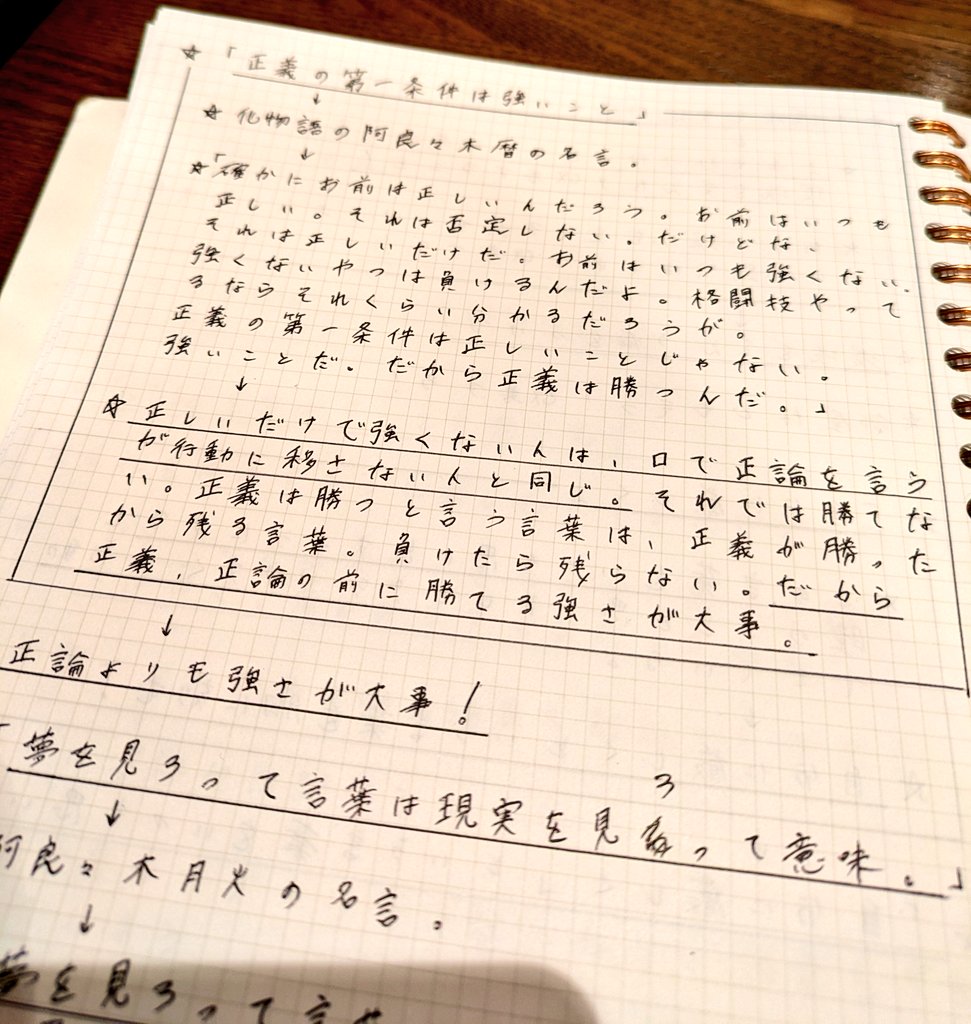 ☆「正義の第一条件は強いこと」
↓
☆化物語の阿良々木暦の名言。
↓
☆「確かにお前は正しいんだろう。お前はいつも
正しい。それは否定しない。だけどな、
それは正しいだけだ。お前はいつも強くない、
強くないやつは負けるんだよ。格闘技やって
るならそれくらい分かるだろうが。
正義の第一条件は正しいことじゃない。
強いことだ。だから正義は勝つんだ。」
↓
☆正しいだけで強くない人は、口で正論を言う
が行動に移さない人と同じ。それでは勝てな
い。正義は勝つと言う言葉は、正義が勝った
から残る言葉。負けたら残らない。だから
正義、正論の前に勝てる強さが大事。
↓
正論よりも強さが大事！
「夢を見ろって言葉は現実を見ろって意味。」
↓
阿良々木月火の名言。
↓
夢を見ろって言